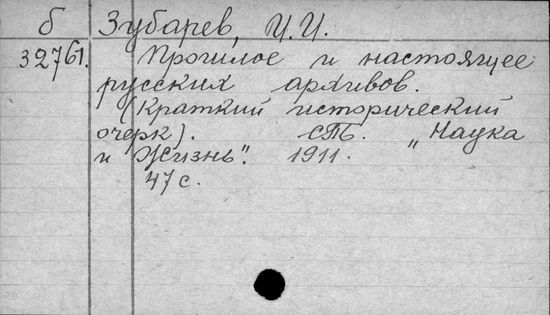 б Зубарев, И.И.
32761. Прошлое и настоящее
русских архивов.
(Краткий исторический
очерк). СПБ. „Наука
и Жизнь". 1911.
47 с.